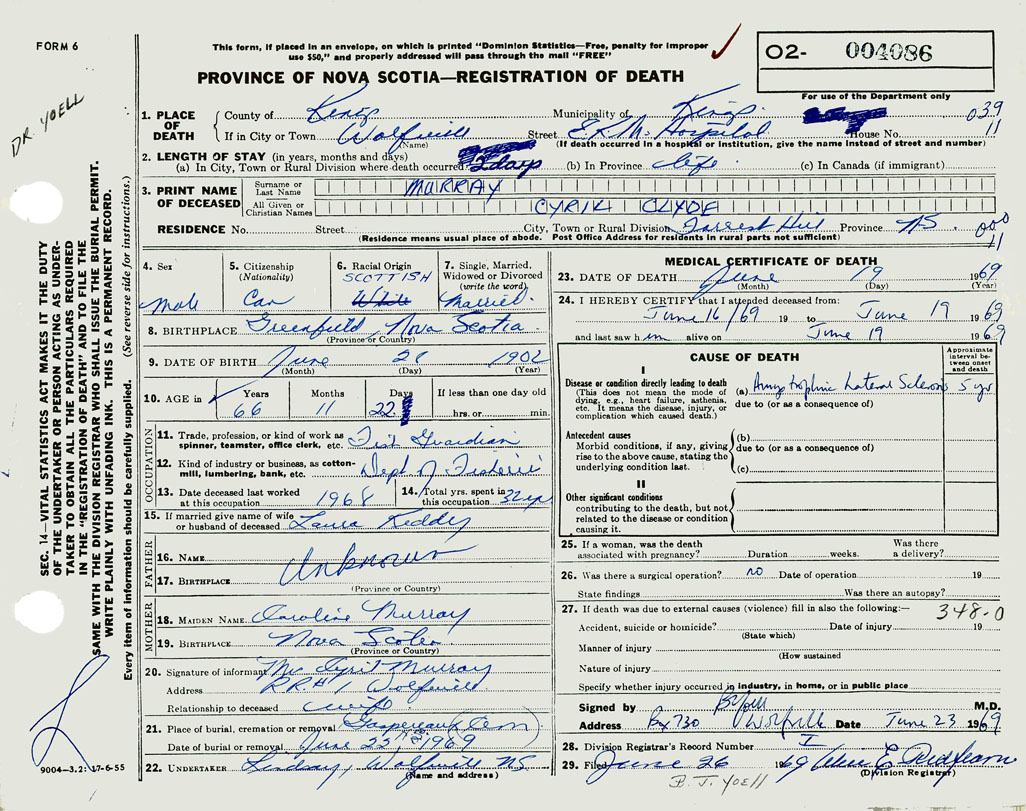 FORM 6
This form, if placed in an envelope, on which is printed "Dominion Statistics—Free, penalty for improper
use $50," and properly addressed will pass through the mail "FREE"
PROVINCE OF NOVA SCOTIA—REGISTRATION OF DEATH
O2- 004086
For use of the Department only
DR. YOELL
SEC. 14—VITAL STATISTICS ACT MAKES IT THE DUTY
OF THE UNDERTAKER OR PERSON ACTING AS UNDER-
TAKER TO OBTAIN ALL THE PARTICULARS REQUIRED
IN THE "REGISTRATION OF DEATH" AND TO FILE THE
SAME WITH THE DIVISION REGISTRAR WHO SHALL ISSUE THE BURIAL PERMIT.
WRITE PLAINLY WITH UNFADING INK. THIS IS A PERMANENT RECORD.
Every item of information should be carefully supplied. (See reverse side for instructions.)
1. PLACE OF DEATH
County of Kings Municipality of Kings 039
If in City or Town Wolfville Street E.K.M. Hospital House No. 11
(Name) (If death occurred in a hospital or institution, give the name instead of street and number)
2. LENGTH OF STAY (in years, months and days)
(a) In City, Town or Rural Division where death occurred 3 days (b) In Province Life (c) In Canada (if immigrant)
3. PRINT NAME OF DECEASED
Surname or Last Name MURRAY
All Given or Christian Names CYRIL CLYDE
RESIDENCE No. Street City, Town or Rural Division Forrest Hill Province NS. 000
(Residence means usual place of abode. Post Office Address for residents in rural parts not sufficient) 11
4. Sex Male
5. Citizenship (Nationality) Can
6. Racial Origin SCOTTISH White
7. Single, Married, Widowed or Divorced (write the word) Married.
8. BIRTHPLACE Greenfield, Nova Scotia
(Province or Country)
9. DATE OF BIRTH June 28 1902
(Month) (Day) (Year)
10. AGE in Years Months Days If less than one day old
66 11 22 hrs. or min.
OCCUPATION
11. Trade, profession, or kind of work as spinner, teamster, office clerk, etc. Fish Guardian
12. Kind of industry or business, as cotton-mill, lumbering, bank, etc. Dept of Fisheries
13. Date deceased last worked at this occupation 1968
14. Total yrs. spent in this occupation 32 yrs
15. If married give name of wife or husband of deceased Laura Reddy
FATHER
16. NAME Unknown
17. BIRTHPLACE
(Province or Country)
MOTHER
18. MAIDEN NAME Caroline Murray
19. BIRTHPLACE Nova Scotia
(Province or Country)
20. Signature of informant Mrs Cyril Murray
Address R.R.# 1 Wolfville
Relationship to deceased wife
21. Place of burial, cremation or removal Gaspereaux Cem
Date of burial or removal June 22, 1969
22. UNDERTAKER Lindsay, Wolfville N.S.
(Name and address)
9004—3.2: 17-6-55
MEDICAL CERTIFICATE OF DEATH
23. DATE OF DEATH June 19 1969
(Month) (Day) (Year)
24. I HEREBY CERTIFY that I attended deceased from:
June 16/69 19 to June 19 1969
and last saw him alive on June 19 1969
CAUSE OF DEATH
Approximate interval between onset and death
I
Disease or condition directly leading to death
(This does not mean the mode of dying, e.g., heart failure, asthenia, etc. It means the disease, injury, or complication which caused death.)
(a) Amyotrophic Lateral Sclerosis 5 yrs
due to (or as a consequence of)
Antecedent causes
Morbid conditions, if any, giving rise to the above cause, stating the underlying condition last.
(b)
due to (or as a consequence of)
(c)
II
Other significant conditions
contributing to the death, but not related to the disease or condition causing it.
25. If a woman, was the death associated with pregnancy? Duration weeks. Was there a delivery?
26. Was there a surgical operation? no Date of operation 19
State findings Was there an autopsy?
27. If death was due to external causes (violence) fill in also the following:— 348-0
Accident, suicide or homicide? Date of injury 19
(State which)
Manner of injury
(How sustained)
Nature of injury
Specify whether injury occurred in industry, in home, or in public place
Signed by BJYoell M.D.
Address Bx 730 Wolfville Date June 23 1969
28. Division Registrar's Record Number I
29. Filed June 26 1969
(Division Registrar)
B. J. YOELL